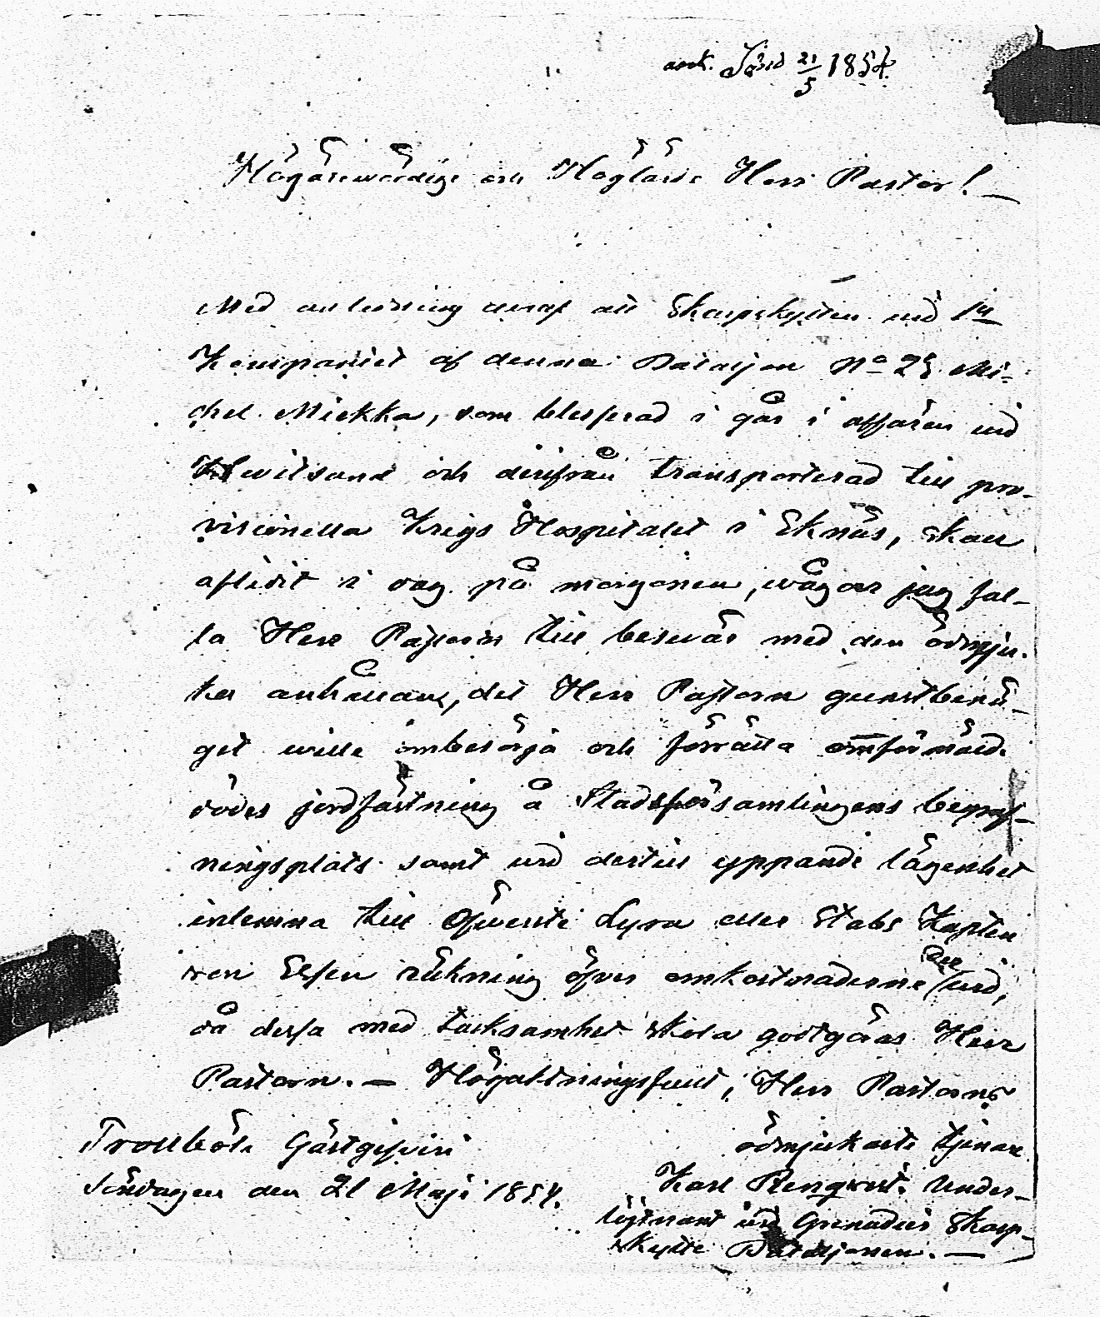 ank. d. 21/5 1854.
Högärewördige och Höglärde Herr Pastor! —
Med anledning deraf att Skarpskytten vid 1a
Kompaniet af denna Bataljon No 25 Mi-
chel Miekka, som blesserad i går i affären vid
Hwitsand och derifrån transporterad till pro-
visionella Krigs Hospitalet i Eknäs, skall
aflidit i dag på morgonen, wågar jag fal-
la Herr Pastorn till beswär med den ödmju-
ka anhållan, det Herr Pastorn gunstbenä-
get wille ombesörja och förrätta omförmälde
dödes jordfästning å Stadsförsamlingens begraf-
ningsplats samt vid dertill yppande lägenhet
inlemna till Öfwerste Lyra eller Stabs Kapten
von Essen räkning öfver omkostnaderne
då dessa med tacksamhet skola godtgöras Herr
Pastorn. — Högaktningsfullt, Herr Pastorns
ödmjukaste tjenare
Trollböle Gästgifveri
Karl Rengvist. Under-
Söndagen den 21 Maji 1854.
löjtnant vid Grenadier Skarp-
skytte Bataljonen. —